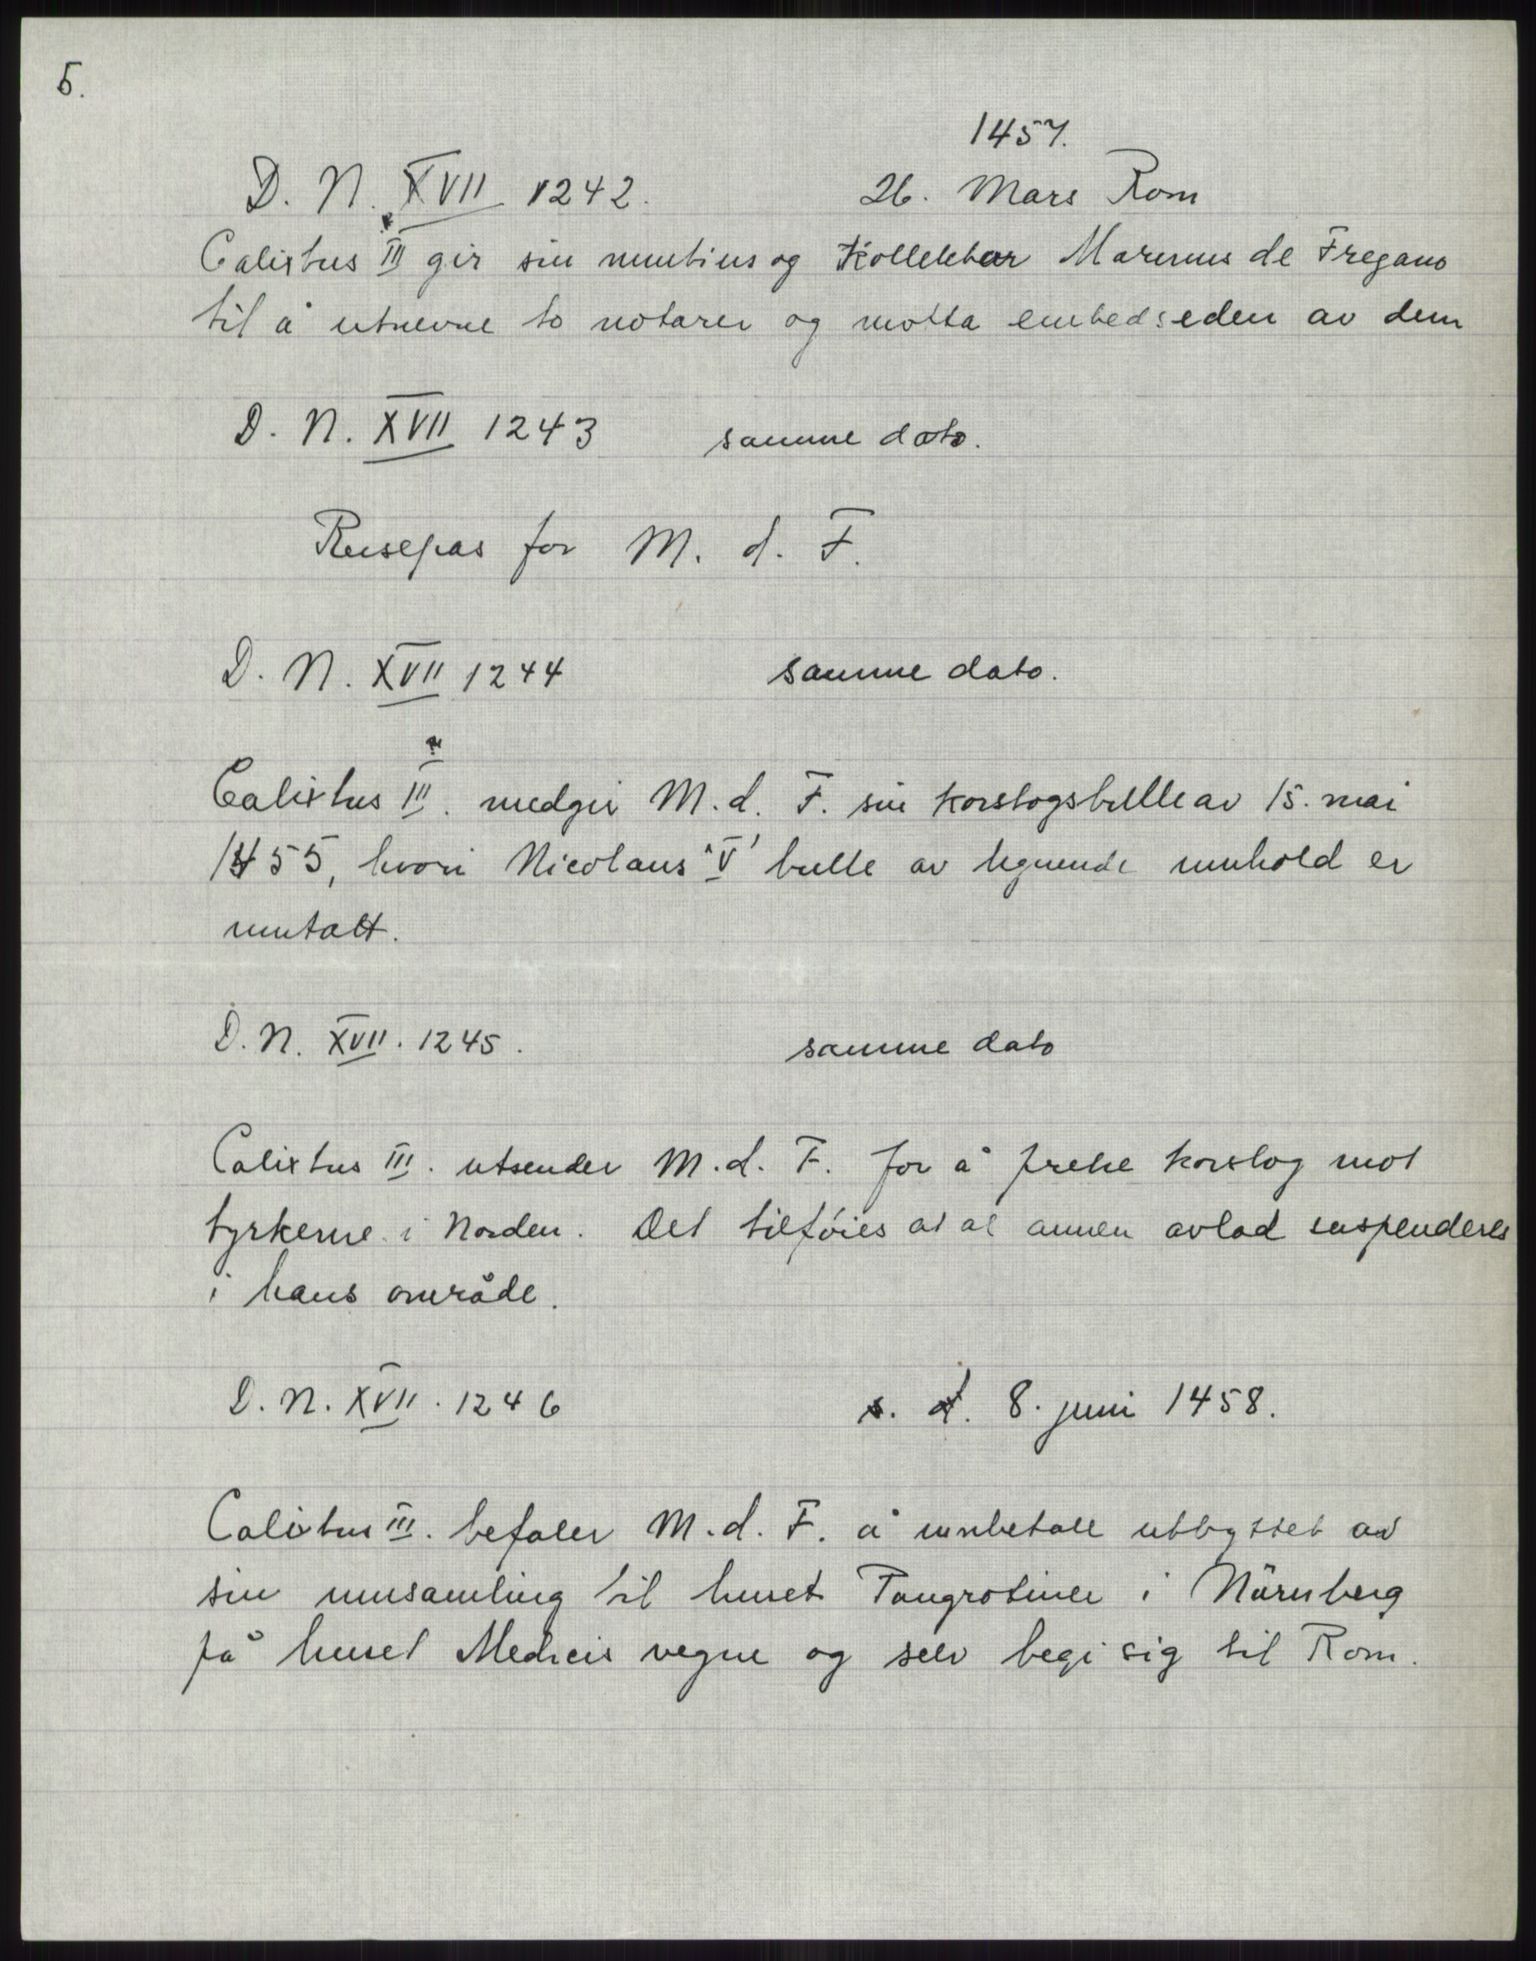 5.
1457.
D. N. XVII 1242. 26. Mars Rom
Calixtus III gir sin nuntius og Kollektor Marinus de Fregano
til å utnevne to notarer og motta embedseden av dem
D. N. XVII 1243 samme dato.
Reisepas for M. d. F.
D. N. XVII 1244 samme dato.
Calixtus III. medgir M. d. F. sin korstogsbulle av 15. mai
1455, hvori Nicolaus V' bulle av lignende innhold er
inntatt.
D. N. XVII. 1245. samme dato
Calixtus III. utsender M. d. F. for å preke korstog mot
tyrkerne i Norden. Det tilføies at al annen avlad suspenderes
i hans område.
D. N. XVII. 1246 s. d. 8. juni 1458.
Calixtus III. befaler M. d. F. å innbetale utbyttet av
sin innsamling til huset i Nürnberg
på huset Medicis vegne og selv begi sig til Rom.